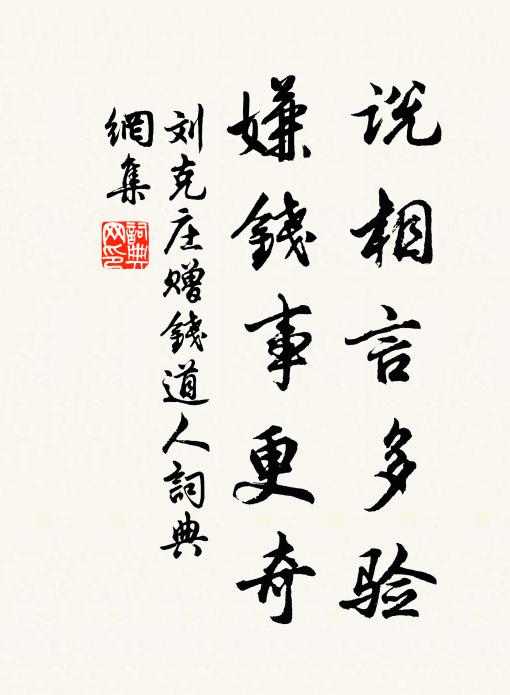 说相言多验
嫌錢事更奇
刘克庄赠錢道人詞典
網集
詞典网印